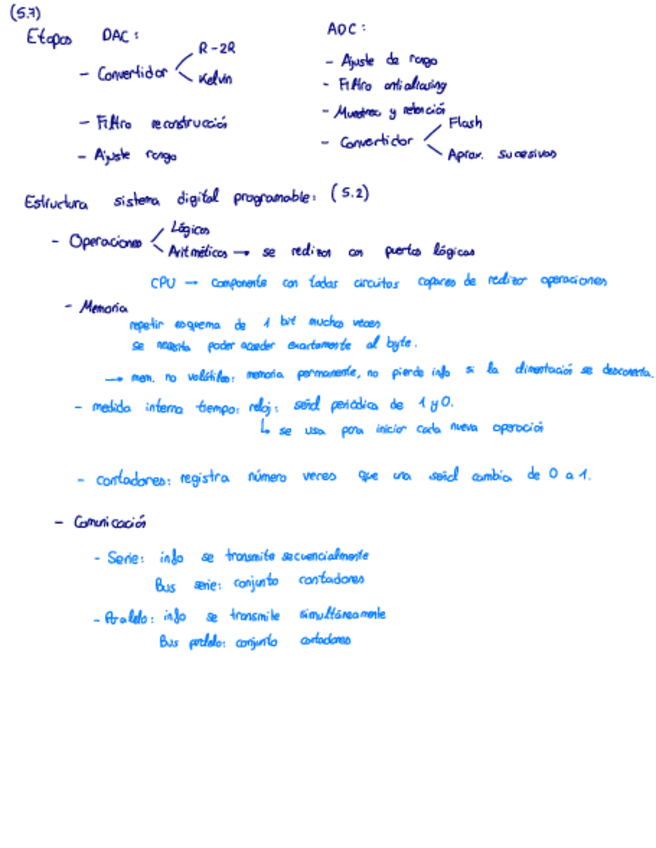 (5.7)
Etapas DAC:
- Convertidor
R-2R
Kelvin
- Filtro reconstrucción
- Ajuste rango
ADC:
- Ajuste de rango
- Filtro antialiasing
- Muestreo y retención
- Convertidor
Flash
Aprox. sucesivas
Estructura sistema digital programable: (5.2)
- Operaciones
Lógicas
Aritméticas → se realizan con puertas lógicas
CPU → componente con todas circuitos capaces de realizar operaciones
- Memoria
repetir esquema de 1 bit muchas veces
se necesita poder acceder exactamente al byte.
→ mem. no volátiles: memoria permanente, no pierde info si la alimentación se desconecta.
- medida interna tiempo: reloj: señal periódica de 1 y 0.
↳ se usa para iniciar cada nueva operación
- contadores: registra número veces que una señal cambia de 0 a 1.
- Comunicación
- Serie: info se transmite secuencialmente
Bus serie: conjunto contadores
- Paralelo: info se transmite simultáneamente
Bus paralelo: conjunto contadores